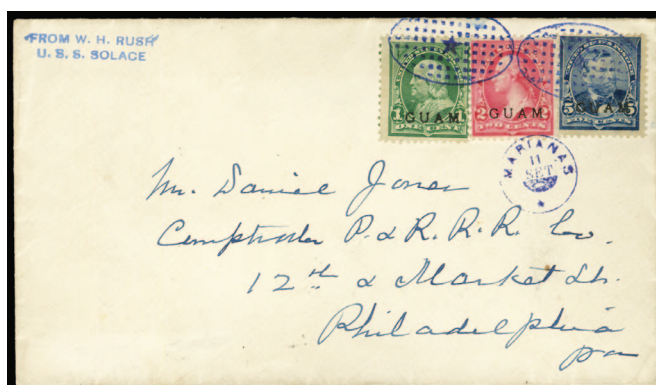 FROM W. H. RUSH
U. S. S. SOLACE
1 GUAM 1
ONE CENT
2 GUAM 2
TWO CENTS
5 GUAM 5
MARIANAS
11
SET
Mr. Daniel Jones
Comptroller P. & R. R. R. Co.
12th & Market Sts.
Philadelphia
Pa